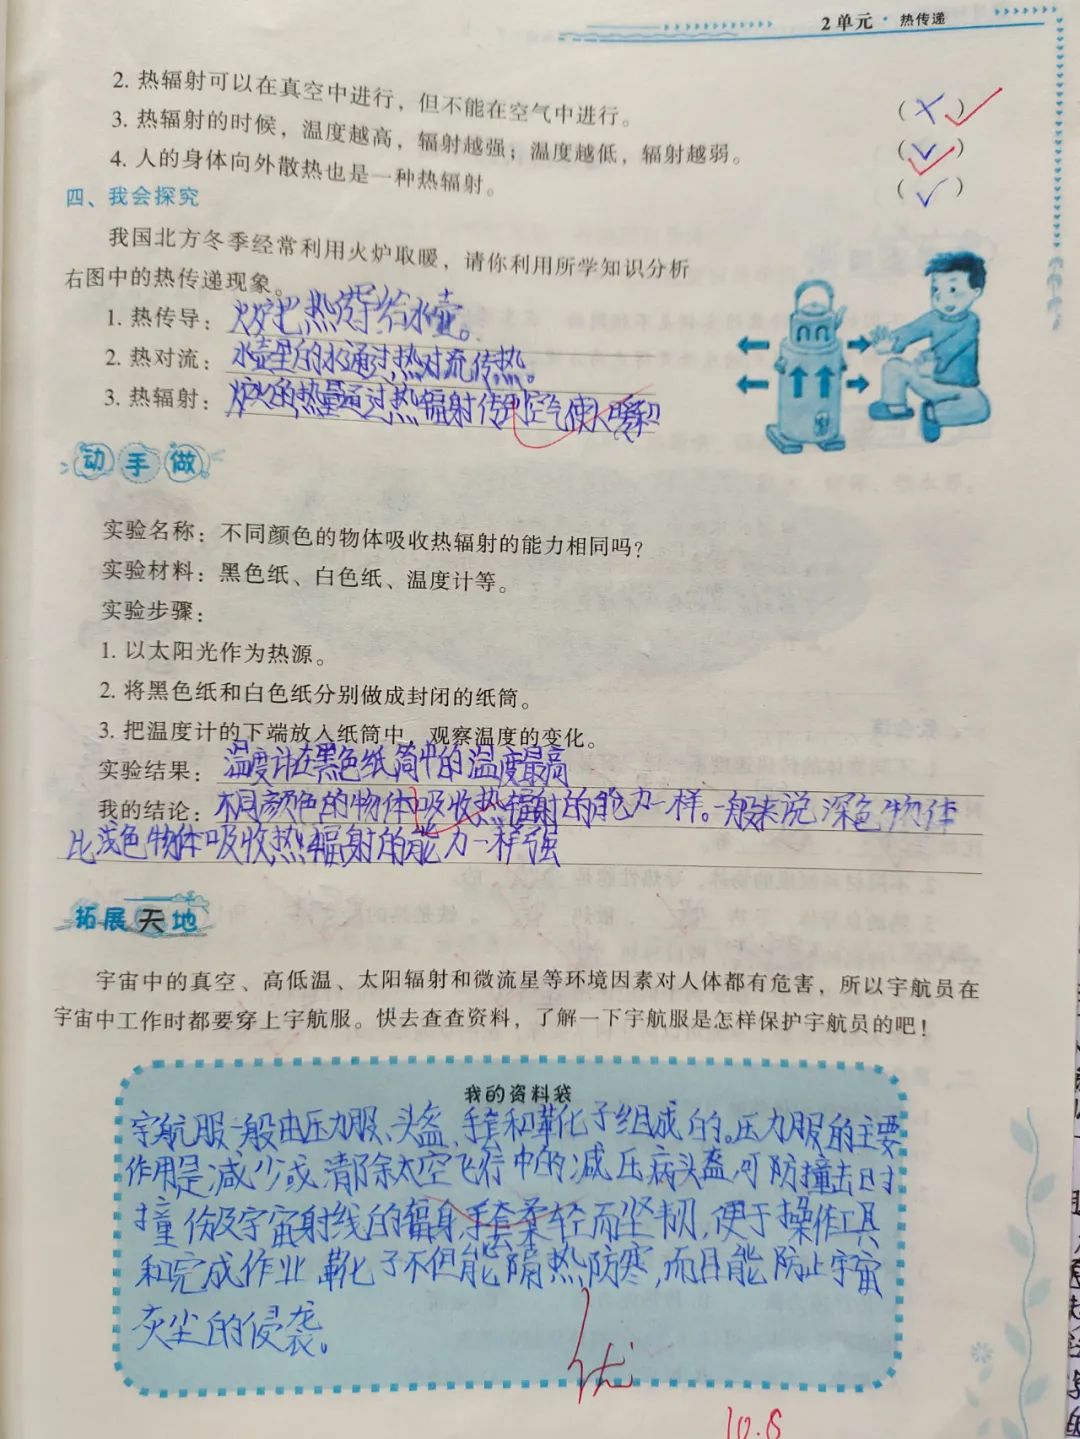 2单元·热传递
2. 热辐射可以在真空中进行，但不能在空气中进行。 (✗)
3. 热辐射的时候，温度越高，辐射越强；温度越低，辐射越弱。 (✓)
4. 人的身体向外散热也是一种热辐射。 (✓)
四、我会探究
我国北方冬季经常利用火炉取暖，请你利用所学知识分析
右图中的热传递现象。
1. 热传导：火炉把热传导给水壶。
2. 热对流：水壶里的水通过热对流传热。
3. 热辐射：炉火的热量通过热辐射传到空气使人暖和
动手做
实验名称：不同颜色的物体吸收热辐射的能力相同吗？
实验材料：黑色纸、白色纸、温度计等。
实验步骤：
1. 以太阳光作为热源。
2. 将黑色纸和白色纸分别做成封闭的纸筒。
3. 把温度计的下端放入纸筒中，观察温度的变化。
实验结果：温度计在黑色纸筒中的温度最高
我的结论：不同颜色的物体吸收热辐射的能力一样。一般来说深色物体
比浅色物体吸收热辐射的能力一样强
拓展天地
宇宙中的真空、高低温、太阳辐射和微流星等环境因素对人体都有危害，所以宇航员在
宇宙中工作时都要穿上宇航服。快去查查资料，了解一下宇航服是怎样保护宇航员的吧！
我的资料袋
宇航服一般由压力服、头盔、手套和靴子组成的。压力服的主要
作用是减少或清除太空飞行中的减压病头盔可防撞击时
撞伤及宇宙射线的辐射,手套柔轻而坚韧,便于操作工具
和完成作业靴子不但能隔热防寒,而且能防止宇宙
灰尘的侵袭。
优
10.8